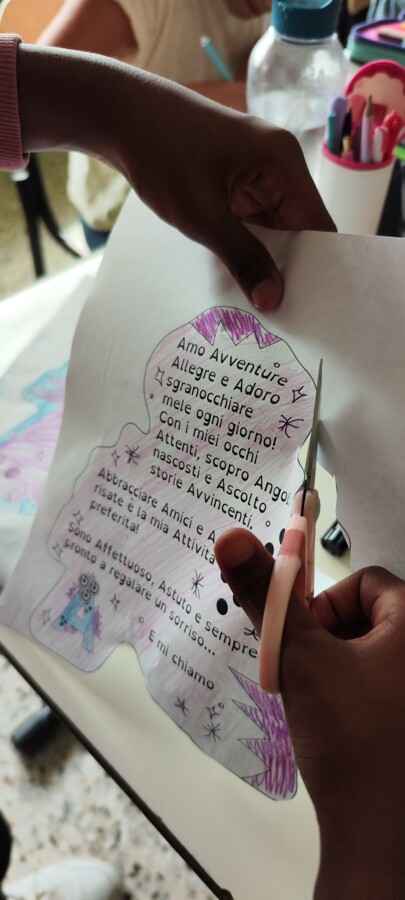 Amo Avventure
Allegre e Adoro
sgranocchiare
mele ogni giorno!
Con i miei occhi
Attenti, scopro Angol
nascosti e Ascolto
storie Avvincenti.
Abbracciare Amici e A
risate è la mia Attivita
preferita!
Sono Affettuoso, Astuto e sempre
pronto a regalare un sorriso...
E mi chiamo
A